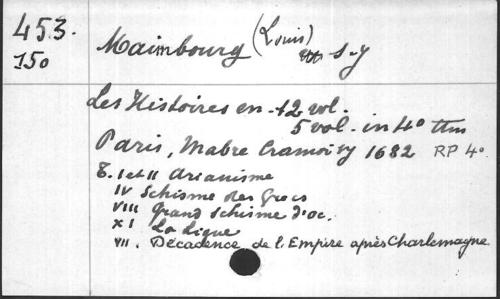 453.
150
Maimbourg (Louis) S-J
Les Histoires en 12 vol.
5 vol. in 4°
Paris, Mabre Cramoisy 1682 RP 4°
T. I et II Arianisme
IV Schisme des Grecs
VIII Grand Schisme d'oc.
XI La Ligue
VII. Décadence de l'Empire après Charlemagne